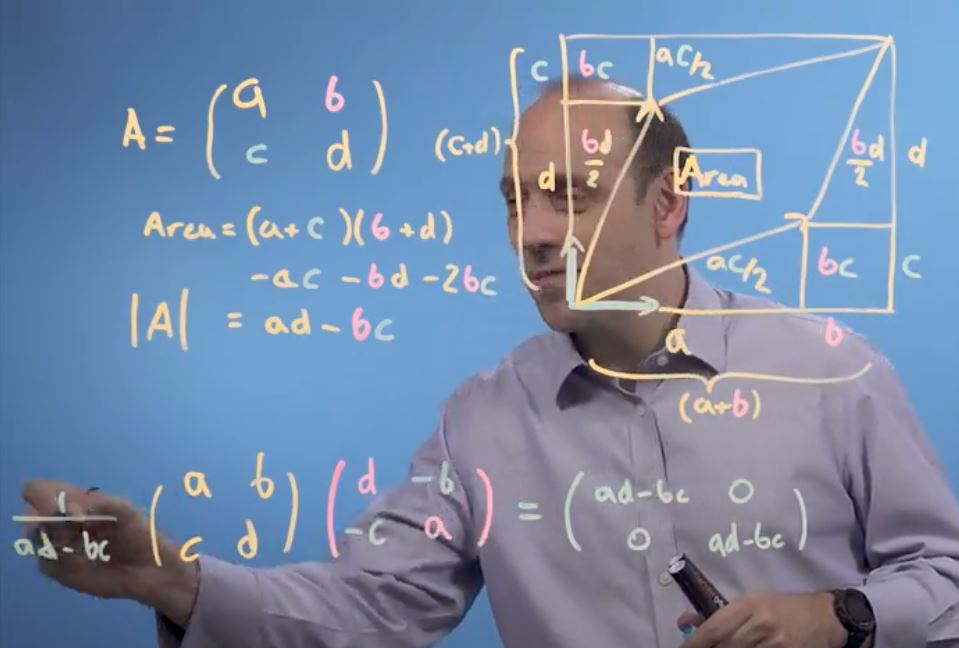 A = ( a b
c d )
Area = (a+c)(b+d)
-ac -bd -2bc
|A| = ad - bc
c bc ac/2
(c+d)
d bd/2 Area bd/2 d
ac/2 bc c
a b
(a+b)
1/ad-bc ( a b
c d ) ( d -b
-c a ) = ( ad-bc 0
0 ad-bc )